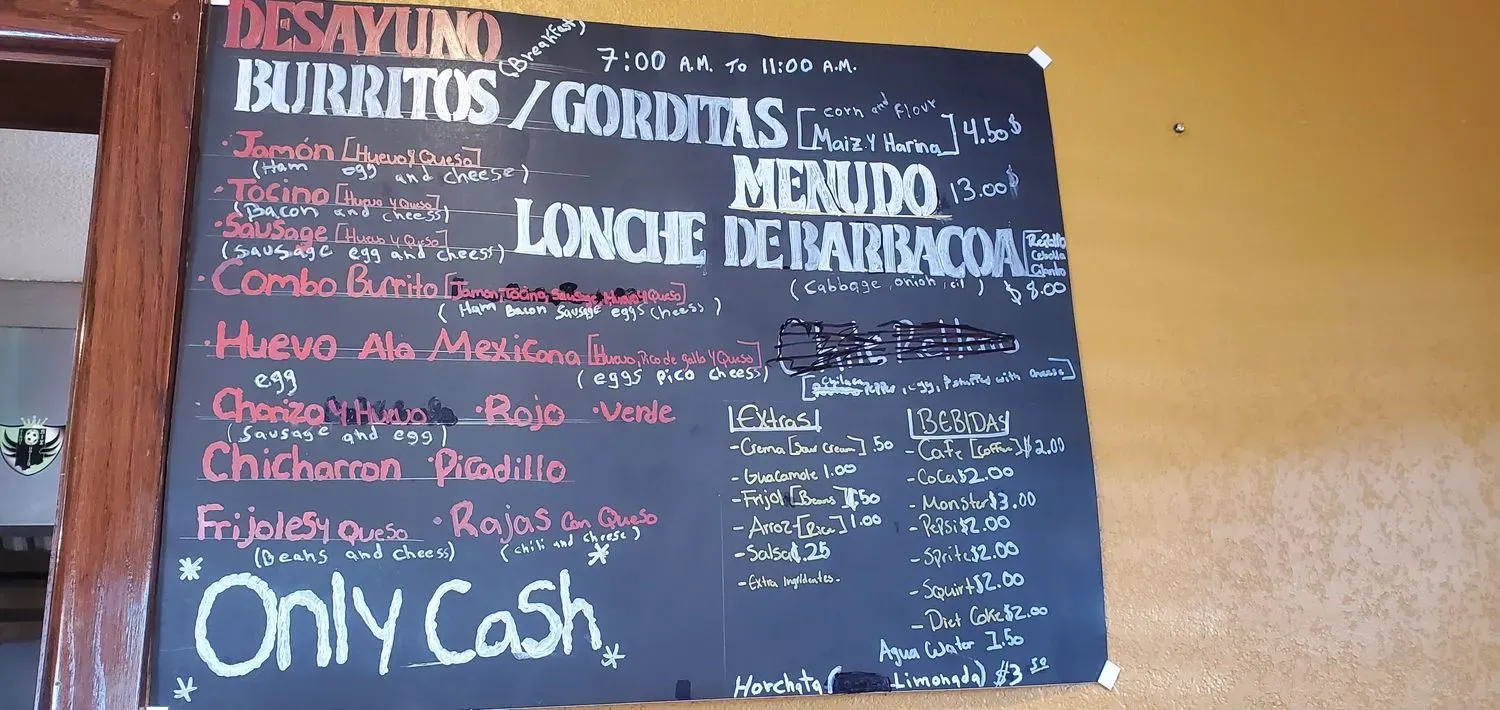 DESAYUNO (Breakfast) 7:00 A.M. To 11:00 A.M.
BURRITOS / GORDITAS [Maiz Y Harina] 4.50$
corn and flour
• Jamón [Huevo y Queso]
(Ham egg and cheese)
• Tocino [Huevo y Queso]
(Bacon and cheess)
• Sausage [Huevo y Queso]
(Sausage egg and cheess)
• Combo Burrito [Jamon, Tocino, Sausage, Huevo y Queso]
(Ham Bacon Sausage eggs cheess)
• Huevo Ala Mexicana [Huevo, Pico de gallo Y Queso]
egg (eggs pico cheess)
• Chorizo Y Huevo • Rojo • Verde
(Sausage and egg)
Chicharron • Picadillo
Frijoles y Queso • Rajas Con Queso
(Beans and cheess) (chili and cheese)
* Only Cash *
MENUDO 13.00$
LONCHE DE BARBACOA [Repollo
Cebolla
Cilantro
(Cabbage, onion, cil) $8.00
pepper, egg, & stuffed with cheese]
Extras
- Crema [Sour Cream] .50
- Guacamole 1.00
- Frijol [Beans] .50
- Arroz [Rice] 1.00
- Salsa .25
- Extra Ingridentes.
BEBIDAS
- Cafe [Coffee] $2.00
- CoCa $2.00
- Monster $3.00
- Pepsi $2.00
- Sprite $2.00
- Squirt $2.00
- Diet Coke $2.00
Agua Water 1.50
Horchata ( Limonada) $3.50